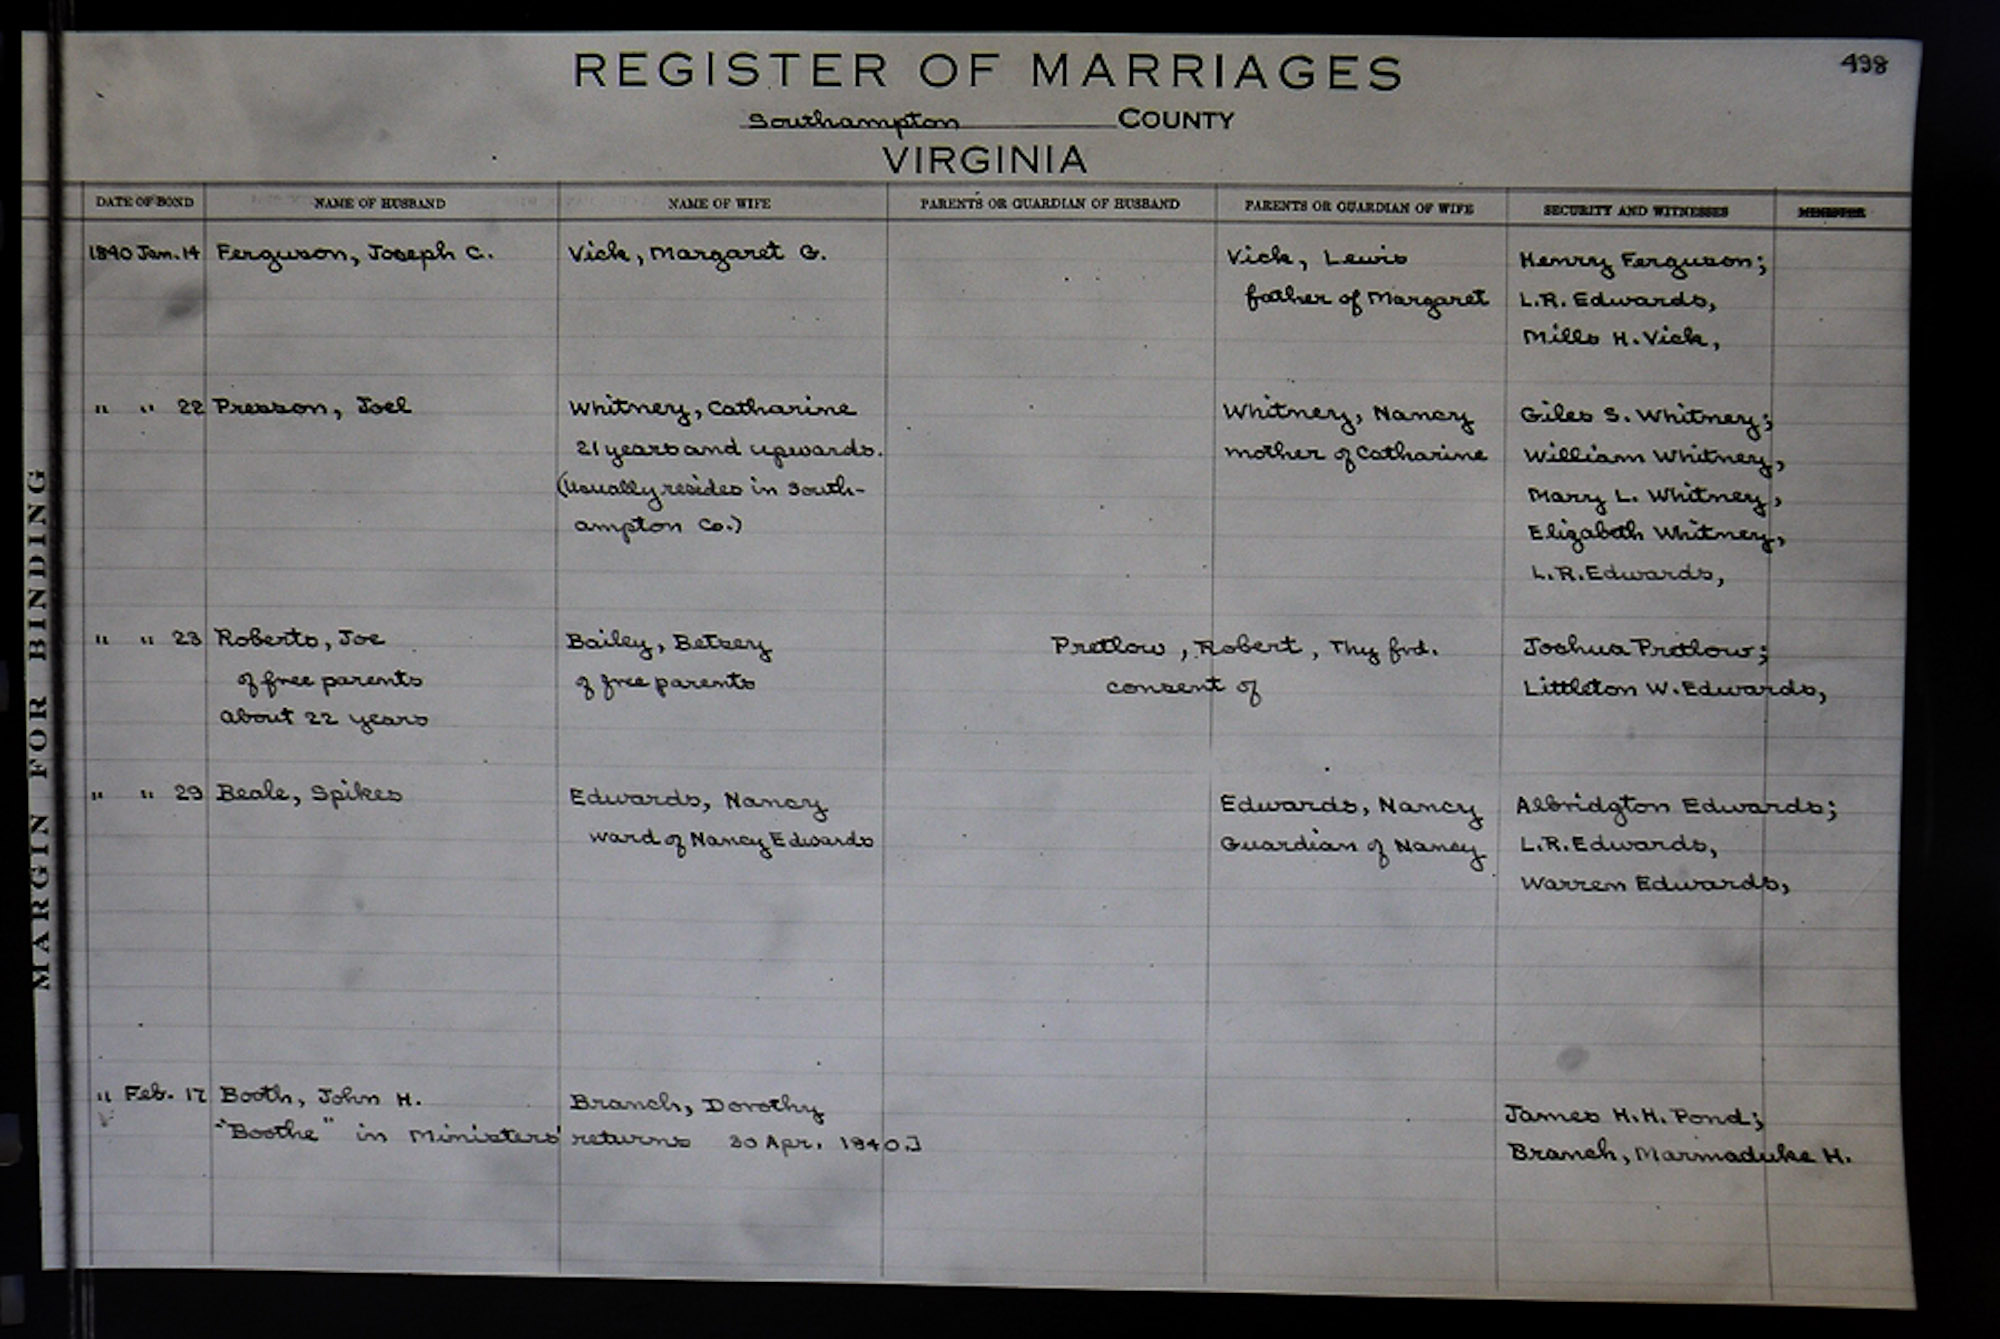 REGISTER OF MARRIAGES
498
Southampton COUNTY
VIRGINIA
DATE OF BOND NAME OF HUSBAND NAME OF WIFE PARENTS OR GUARDIAN OF HUSBAND PARENTS OR GUARDIAN OF WIFE SECURITY AND WITNESSES MINISTER
1840 Jan. 14 Ferguson, Joseph C. Vick, Margaret G. Vick, Lewis Henry Ferguson;
father of Margaret L.R. Edwards,
Mills H. Vick,
" " 22 Presson, Joel Whitney, Catharine Whitney, Nancy Giles S. Whitney;
21 years and upwards. mother of Catharine William Whitney,
(Usually resides in South- Mary L. Whitney,
ampton Co.) Elizabeth Whitney,
L.R. Edwards,
" " 23 Roberts, Joe Bailey, Betsey Pretlow, Robert, Thy frd. Joshua Pretlow;
of free parents of free parents consent of Littleton W. Edwards,
about 22 years
" " 29 Beale, Spikes Edwards, Nancy Edwards, Nancy Albridgton Edwards;
ward of Nancy Edwards Guardian of Nancy L.R. Edwards,
Warren Edwards,
" Feb. 17 Booth, John H. Branch, Dorothy James H.H. Pond;
"Boothe" in Ministers' returns 30 Apr. 1840.] Branch, Marmaduke H.
MARGIN FOR BINDING